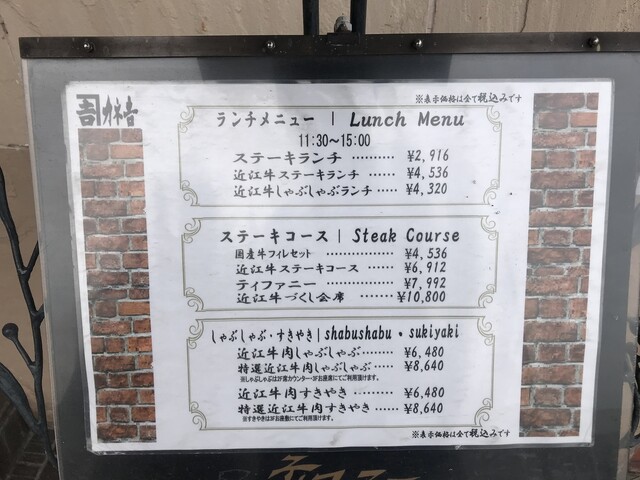 吾 カネ吉
※表示価格は全て税込みです
ランチメニュー | Lunch Menu
11:30～15:00
ステーキランチ ………… ¥2,916
近江牛ステーキランチ …… ¥4,536
近江牛しゃぶしゃぶランチ … ¥4,320
ステーキコース | Steak Course
国産牛フィレセット ………… ¥4,536
近江牛ステーキコース …… ¥6,912
ティファニー ………… ¥7,992
近江牛づくし会席 ……… ¥10,800
しゃぶしゃぶ・すきやき | shabushabu • sukiyaki
近江牛肉しゃぶしゃぶ……… ¥6,480
特選近江牛肉しゃぶしゃぶ…… ¥8,640
※しゃぶしゃぶは2F席カウンター・3Fお座席にてご利用頂けます。
近江牛肉すきやき ……… ¥6,480
特選近江牛肉すきやき …… ¥8,640
※すきやきは3Fお座敷にてご利用頂けます。
※表示価格は全て税込みです